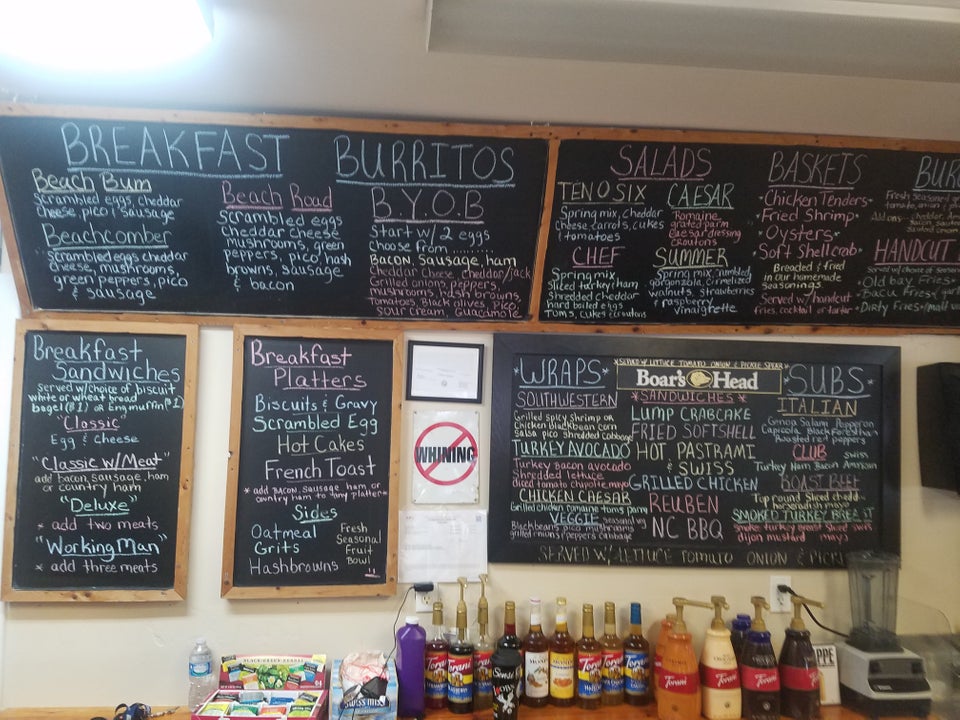 BREAKFAST BURRITOS
Beach Bum
Scrambled eggs, cheddar
cheese, pico & sausage
Beachcomber
scrambled eggs cheddar
cheese, mushrooms,
green peppers, pico
& sausage
Beach Road
scrambled eggs
cheddar cheese
mushrooms, green
peppers, pico, hash
browns, sausage
& bacon
B.Y.O.B
Start w/ 2 eggs
choose from
Bacon, sausage, ham
Cheddar cheese, cheddar/jack
Grilled onions, peppers,
mushrooms, hash browns,
Tomatoes, Black olives, Pico,
sour cream, Guacamole
SALADS
TEN O SIX
Spring mix, cheddar
cheese, carrots, cukes
& tomatoes
CHEF
Spring mix,
sliced turkey & ham
shredded cheddar
hard boiled eggs
Toms, cukes & croutons
CAESAR
Romaine,
grated parm
Caesar dressing
croutons
SUMMER
Spring mix, crumbled
gorgonzola, crimelized
walnuts, strawberries
& raspberry
vinaigrette
BASKETS
*Chicken Tenders*
*Fried Shrimp*
*Oysters*
*Soft Shell crab*
Breaded & fried
in our homemade
seasonings
Served w/ handcut
fries, cocktail or tarter
HANDCUT
Old bay Fries
Dirty Fries
Breakfast
Sandwiches
Served w/ choice of biscuit
white or wheat bread
bagel ($1) or Eng muffin ($1)
"Classic"
Egg & Cheese
"Classic w/ Meat"
add Bacon, Sausage, ham
or country ham
"Deluxe"
* add two meats
"Working Man"
* add three meats
Breakfast
Platters
Biscuits & Gravy
Scrambled Egg
Hot Cakes
French Toast
* add Bacon, Sausage, ham or
country ham to any platter *
Sides
Oatmeal
Grits
Hashbrowns
Fresh
Seasonal
Fruit
Bowl
WHINING
*WRAPS*
SOUTHWESTERN
Grilled spicy shrimp or
Chicken blackbean corn
salsa pico shredded cabbage
TURKEY AVOCADO
Turkey bacon avocado
shredded lettuce
diced tomato chipotle mayo
CHICKEN CAESAR
Grilled chicken romaine toms parm
VEGGIE
Blackbeans pico mushrooms
grilled onions & peppers cabbage
*SERVED W/ LETTUCE TOMATO ONION & PICKLE SPEAR*
Boar's Head
*SANDWICHES*
LUMP CRABCAKE
FRIED SOFTSHELL
HOT PASTRAMI
& SWISS
GRILLED CHICKEN
REUBEN
NC BBQ
*SUBS*
ITALIAN
Genoa Salami Pepperoni
Capicola Black Forest ham
Roasted red peppers
CLUB
swiss
Turkey Ham Bacon American
ROAST BEEF
Top round sliced chedd
horseradish mayo
SMOKED TURKEY
smoke turkey breast sliced swiss
dijon mustard mayo
SERVED W/ LETTUCE TOMATO ONION & PICKL
SWISS MIX
Torani
Torani
Torani
Torani
Torani
Torani
Torani
Torani